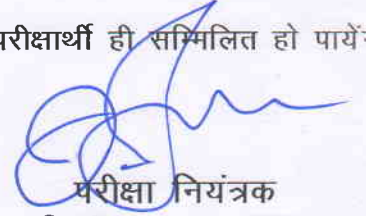 परीक्षार्थी ही सम्मिलित हो पायें
परीक्षा नियंत्रक